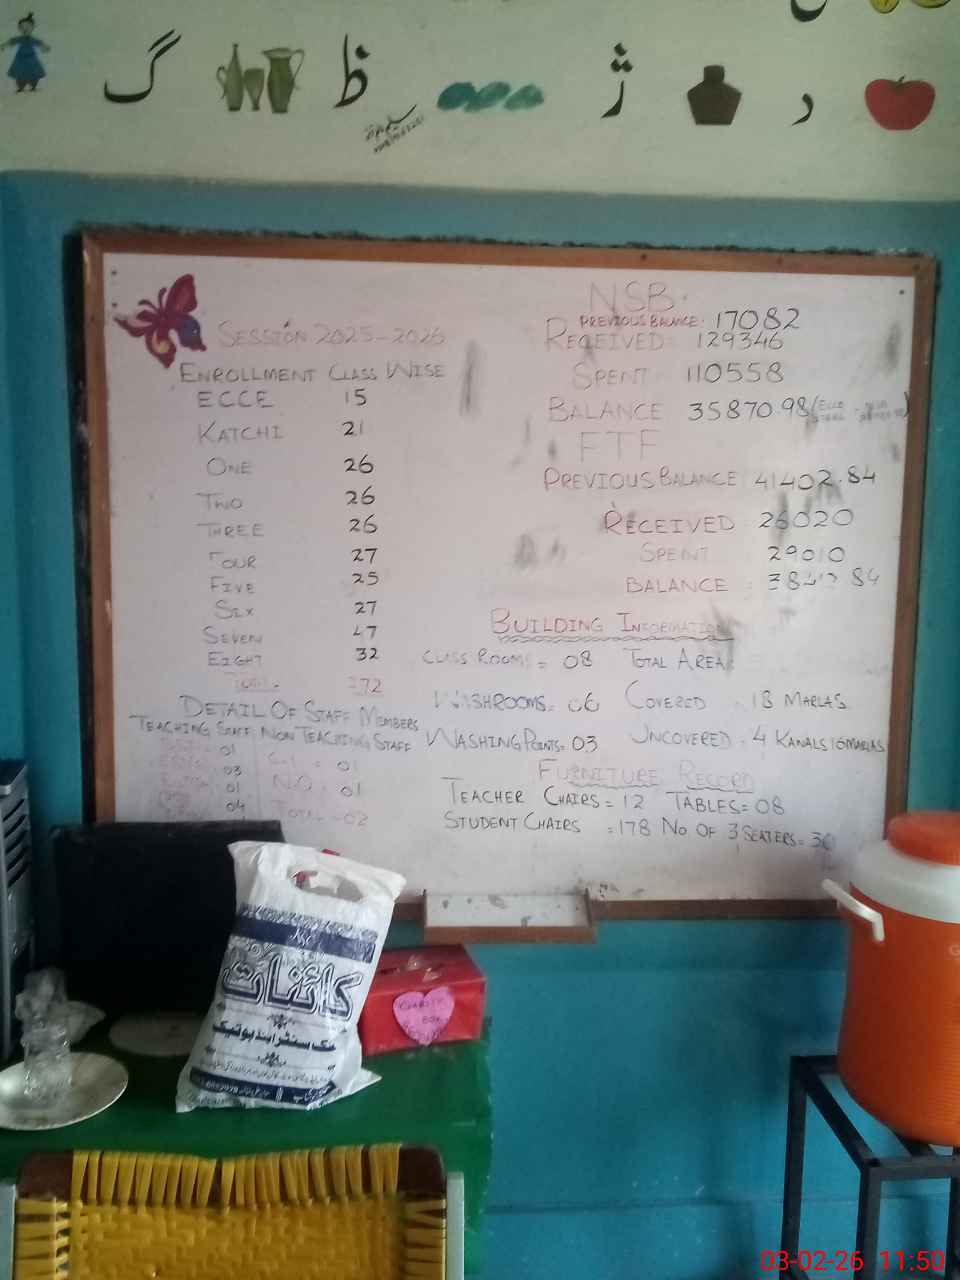 گ
ظ
ژ
د
NSB.
PREVIOUS BALANCE. 17082
SESSION 2025-2026
RECEIVED 129346
ENROLLMENT CLASS WISE
SPENT 110558
ECCE 15
BALANCE 35870.98
KATCHI 21
FTF
ONE 26
PREVIOUS BALANCE 41402.84
TWO 26
RECEIVED 26020
THREE 26
SPENT 29010
FOUR 27
BALANCE
FIVE 25
SIX 27
BUILDING INFORMATION
SEVEN 47
EIGHT 32
CLASS ROOMS = 08 TOTAL AREA
TOTAL 272
WASHROOMS = 06 COVERED 18 MARLAS
DETAIL OF STAFF MEMBERS
TEACHING STAFF NON TEACHING STAFF
WASHING POINTS = 03 UNCOVERED . 4 KANALS 16 MARLAS
01 01
FURNITURE RECORD
03 N.Q. 01
TEACHER CHAIRS = 12 TABLES = 08
01 TOTAL - 02
STUDENT CHAIRS = 178 NO OF 3 SEATERS = 30
04
کائنات
BOX
03-02-26 11:50